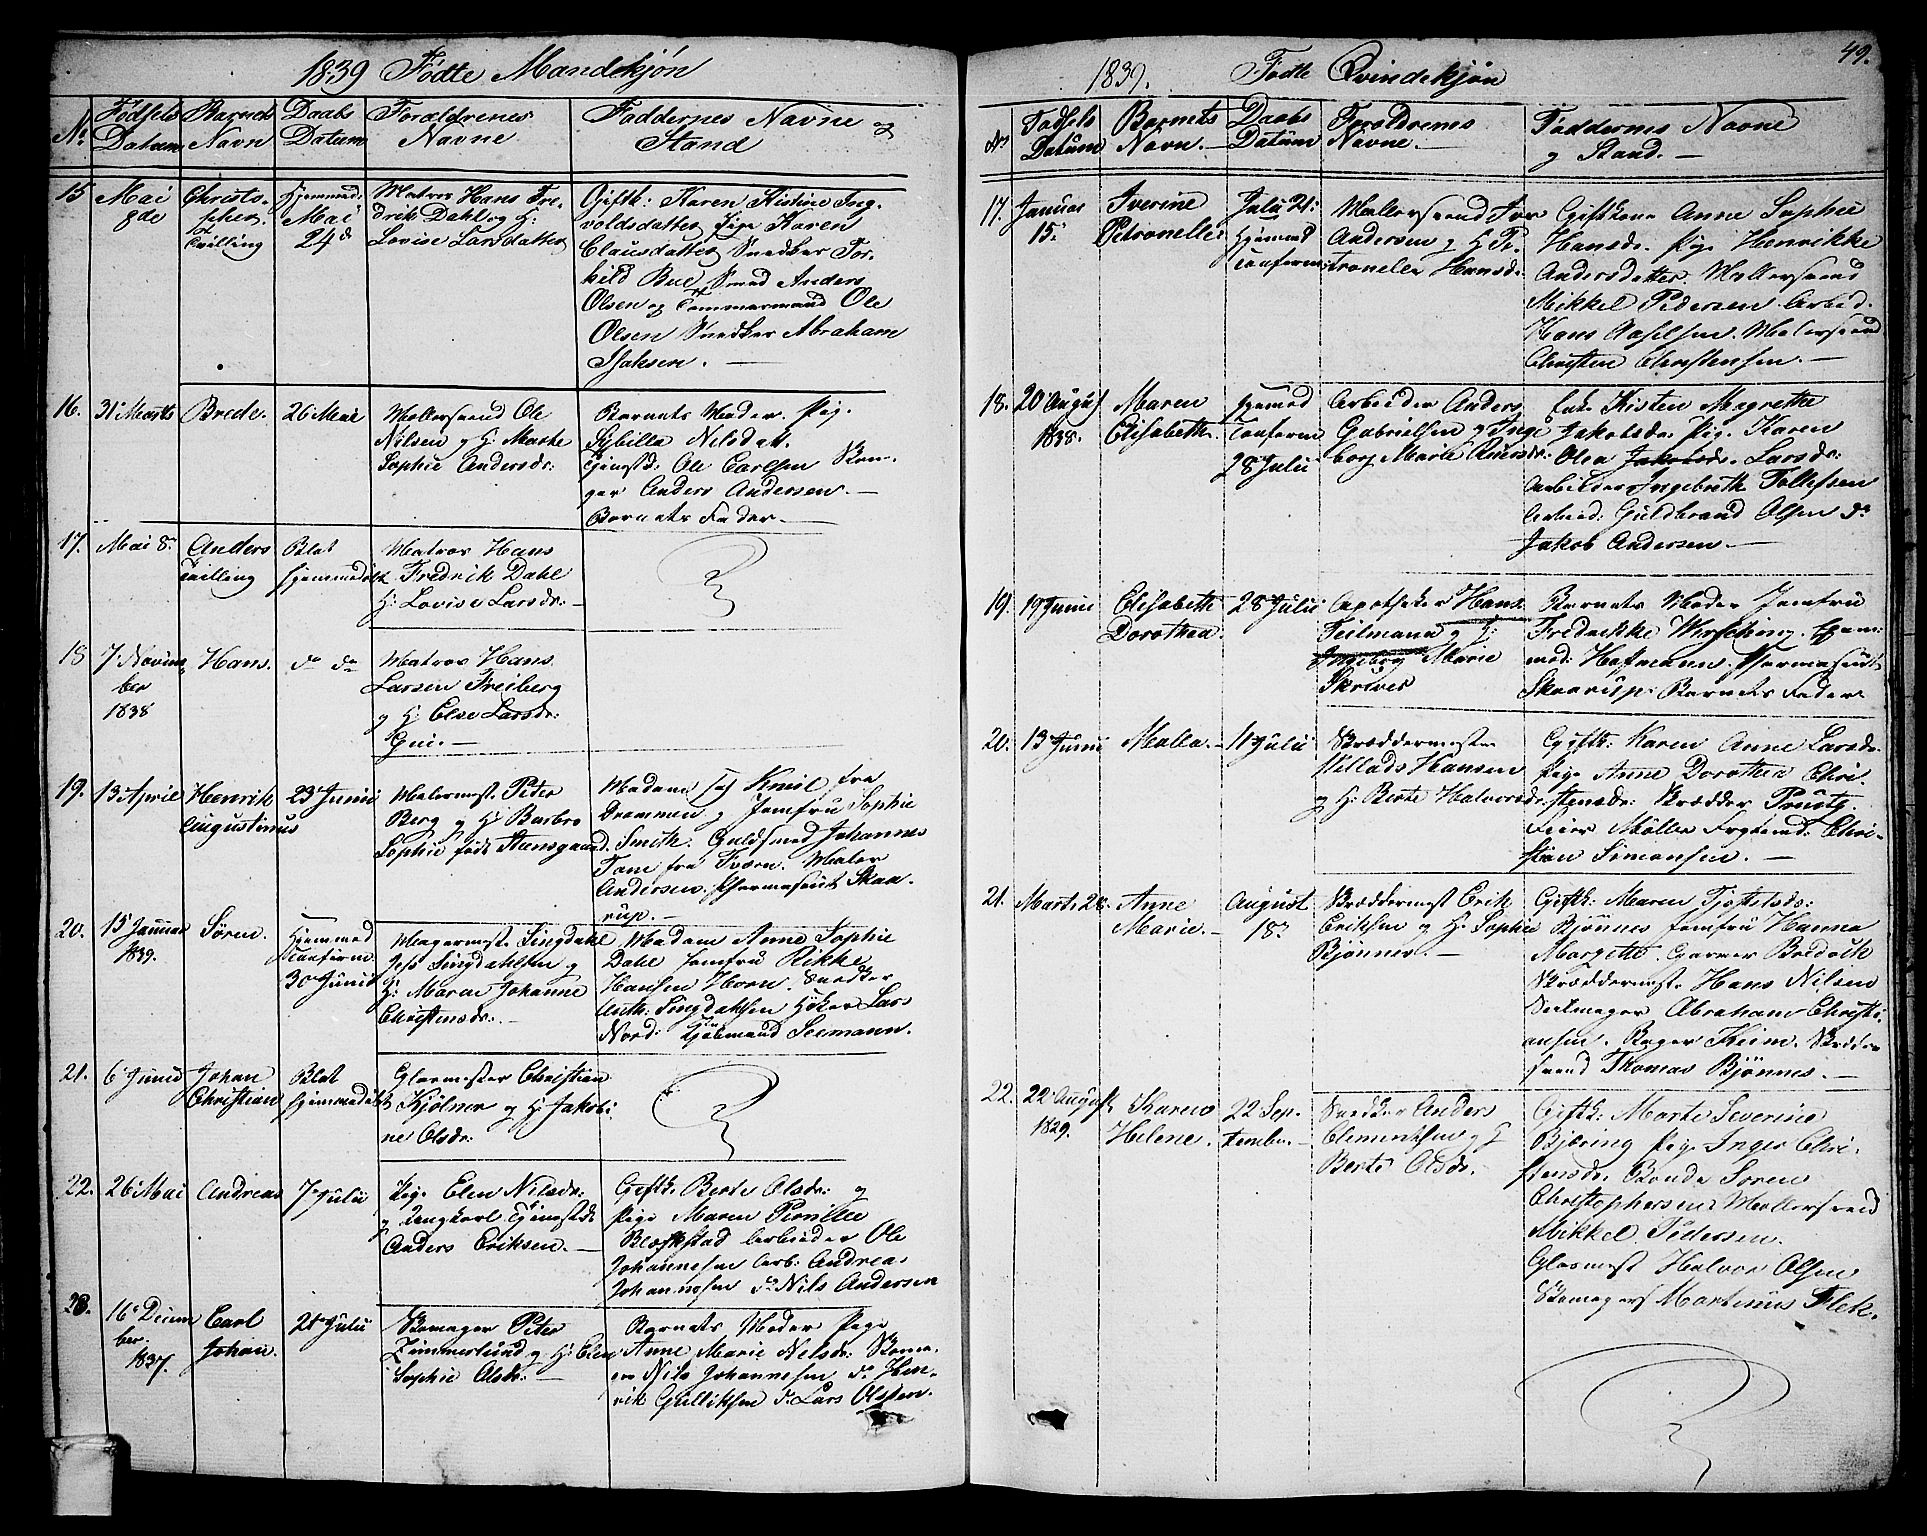 1839 Födte Mandekjön
No. Födsels Datum Barnets Navn Daabs Datum Forældrenes Navne Faddernes Navne og Stand
15 Mai 8de Christopher Tvilling Hjemmed. Mai 24d
Matros Hans Fredrik Dahl og H:
Lovise Larsdatter
Giftk: Karen Kistine Ingvoldsdatter
Pige Karen
Clausdatter Snedker Torkild
Bue Smed Anders
Olsen og Tømmermand Ole
Olsen Snedker Abraham
Isaksen. —
16. 31te Marts Brede. 26 Mai
Møllersvend Ole
Nilsen og H: Marthe
Sophie Andersdr:
Barnets Moder. Pig.
Sybilla Nilsdatt.
Tjenstdr: Ole Carlsen
Anders Andersen. —
Barnets Fader. —
17. Mai 8de Anders Tvilling Blot hjemmedøbt
Matros Hans
Fredrik Dahl
H: Lovise Larsdr: —
18 7 November 1838 Hans. do do
Matros Hans
Larsen Freiberg
og H: Else Larsdr:
19. 13 April Henrik Augustinus 23 Junii
Malermest. Peter
Berg og H: Barbro
Sophie født Steensgaard.
Madame Kniil fra
Drammen og Jomfru Sophie
Smith. Guldsmed Johannes
Tane fra Tværn. Maler
Andersen. Pharmaseut Skaarup. —
20. 15 Januar 1839. Søren. Hjemmed Confirm 30 Junii
Magermest. Lingdahl
Jess Lingdahlsen og
H: Maren Johanne
Christensdr: —
Madam Anne Sophie
Dahl Jomfru Rikke
Hansen Horn. Snedker
Anth: Lingdahlsen Høker Lars
Nord: Kjøbmand Seemann.
21. 6 Junii Johan Christian Blot hjemmedøbt
Glasmester Christian
Kjölner og H: Jakobine
Olsdr:
22. 26 Mai Andreas 7de Julii
Pige Elen Nilsdr:
og Ungkarl Tjenestdr
Anders Eriksen. —
Giftk. Berte Olsdr: og
Pige Maren Pernille
Blækstad Arbeider Ole
Johannesen Arb: Andreas
Johannesen do Nils Andersen
23. 16 December 1837. Carl Johan. 21de Julii
Skomager Peter
Zimmerlund og H: Elen
Sophie Olsdr: —
Barnets Moder Pige
Anne Marie Nelsdr:
Nils Johannesen do Henrik
Gulliksen do Lars Olssen.
49.
1839. Fødte Qvindekjön
No Fødsels Datum Barnets Navn. — Daabs Datum Foroldrenes Navne. — Faddernes Navne og Stand. —
17. Januar 15. Iverine Petronelle. Julii 21. Hjemmed Conferm:
Møllersvend Iver
Andersen og H: Petronelle
Hansdr.
Giftkone Anne Sophie
Hansdr. Pige Henrikke
Andersdatter. Møllersvend
Mikkel Pedersen Arbeid.
Hans Axelsen. Malersvend
Christen Christensen. —
18. 20 August 1838. Maren Elisabeth. Hjemmed Conferm 28 Julii
Arbeider Anders
Gabrielsen og Ingeborg
Marie
Enke Kisten Magrethe
Jakobsdr. Pig. Karen
Olea Jakobsdr. Larsdr:
Arbeider Ingebreth Tollefsen
Arbeid: Guldbrand Olsen do
Jakob Andersen. —
19. 19 Junii Elisabeth Dorothea. 28 Julii
Apotheker Hans
Teilmann og H:
Ingeborg Marie
Skriver
Barnets Moder Jomfru
Fredrikke Wirsching.
Hofmann. Pharmaseut
Skaarup. Barnets Fader
20. 13 Junii Malla. — 11 Julii
Skræddermester
Villads Hansen
og H: Berte Halvorsdr.
Giftk: Karen Anne Larsdr.
Pige Anne Dorothea Christensdr:
Skrædder Proustz.
Feier Möller Christian
Simonsen. —
21. Marts 28. Anne Marie. — August 18.
Skræddermest. Erik
Eriksen og H: Sophie
Bjönnes. —
Giftk: Maren Tjostelsdr:
Bjönnes Jomfru Hanna
Margrethe. Garver Bredvik
Skræddermest. Hans Nilsen
Seilmager Abraham Christiansen.
Bager Keim. Skræddersvend
Thomas Bjönnes. —
22. 22 August 1829. Karen Helene. 22 September. —
Snedker Anders
Clementsen og H
Berte Olsdr. —
Giftk: Marte Severine
Bjæring Pige Inger Christensdr.
Bonde Soren
Christophersen. Møllersvend
Mikkel Pedersen.
Glasmest Halvor Olsen
Skomager Martinus Flek.